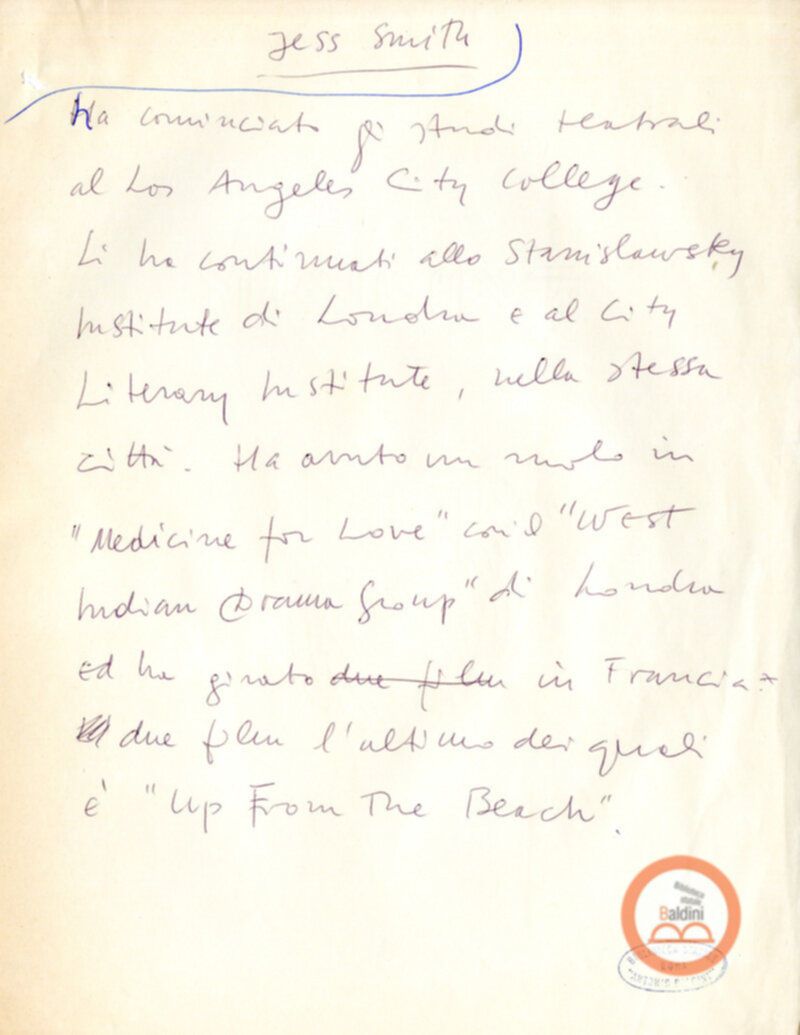 Jess Smith
Ha cominciato gli studi teatrali
al Los Angeles City College.
Li ha continuati allo Stanislawsky
Institute di Londra e al City
Literary Institute, nella stessa
città. Ha avuto un ruolo in
"Medicine for Love" con il "West
Indian Drama Group" di Londra
ed ha girato due film in Francia
due film l'ultimo dei quali
è "Up From The Beach".
Biblioteca
statale
Baldini